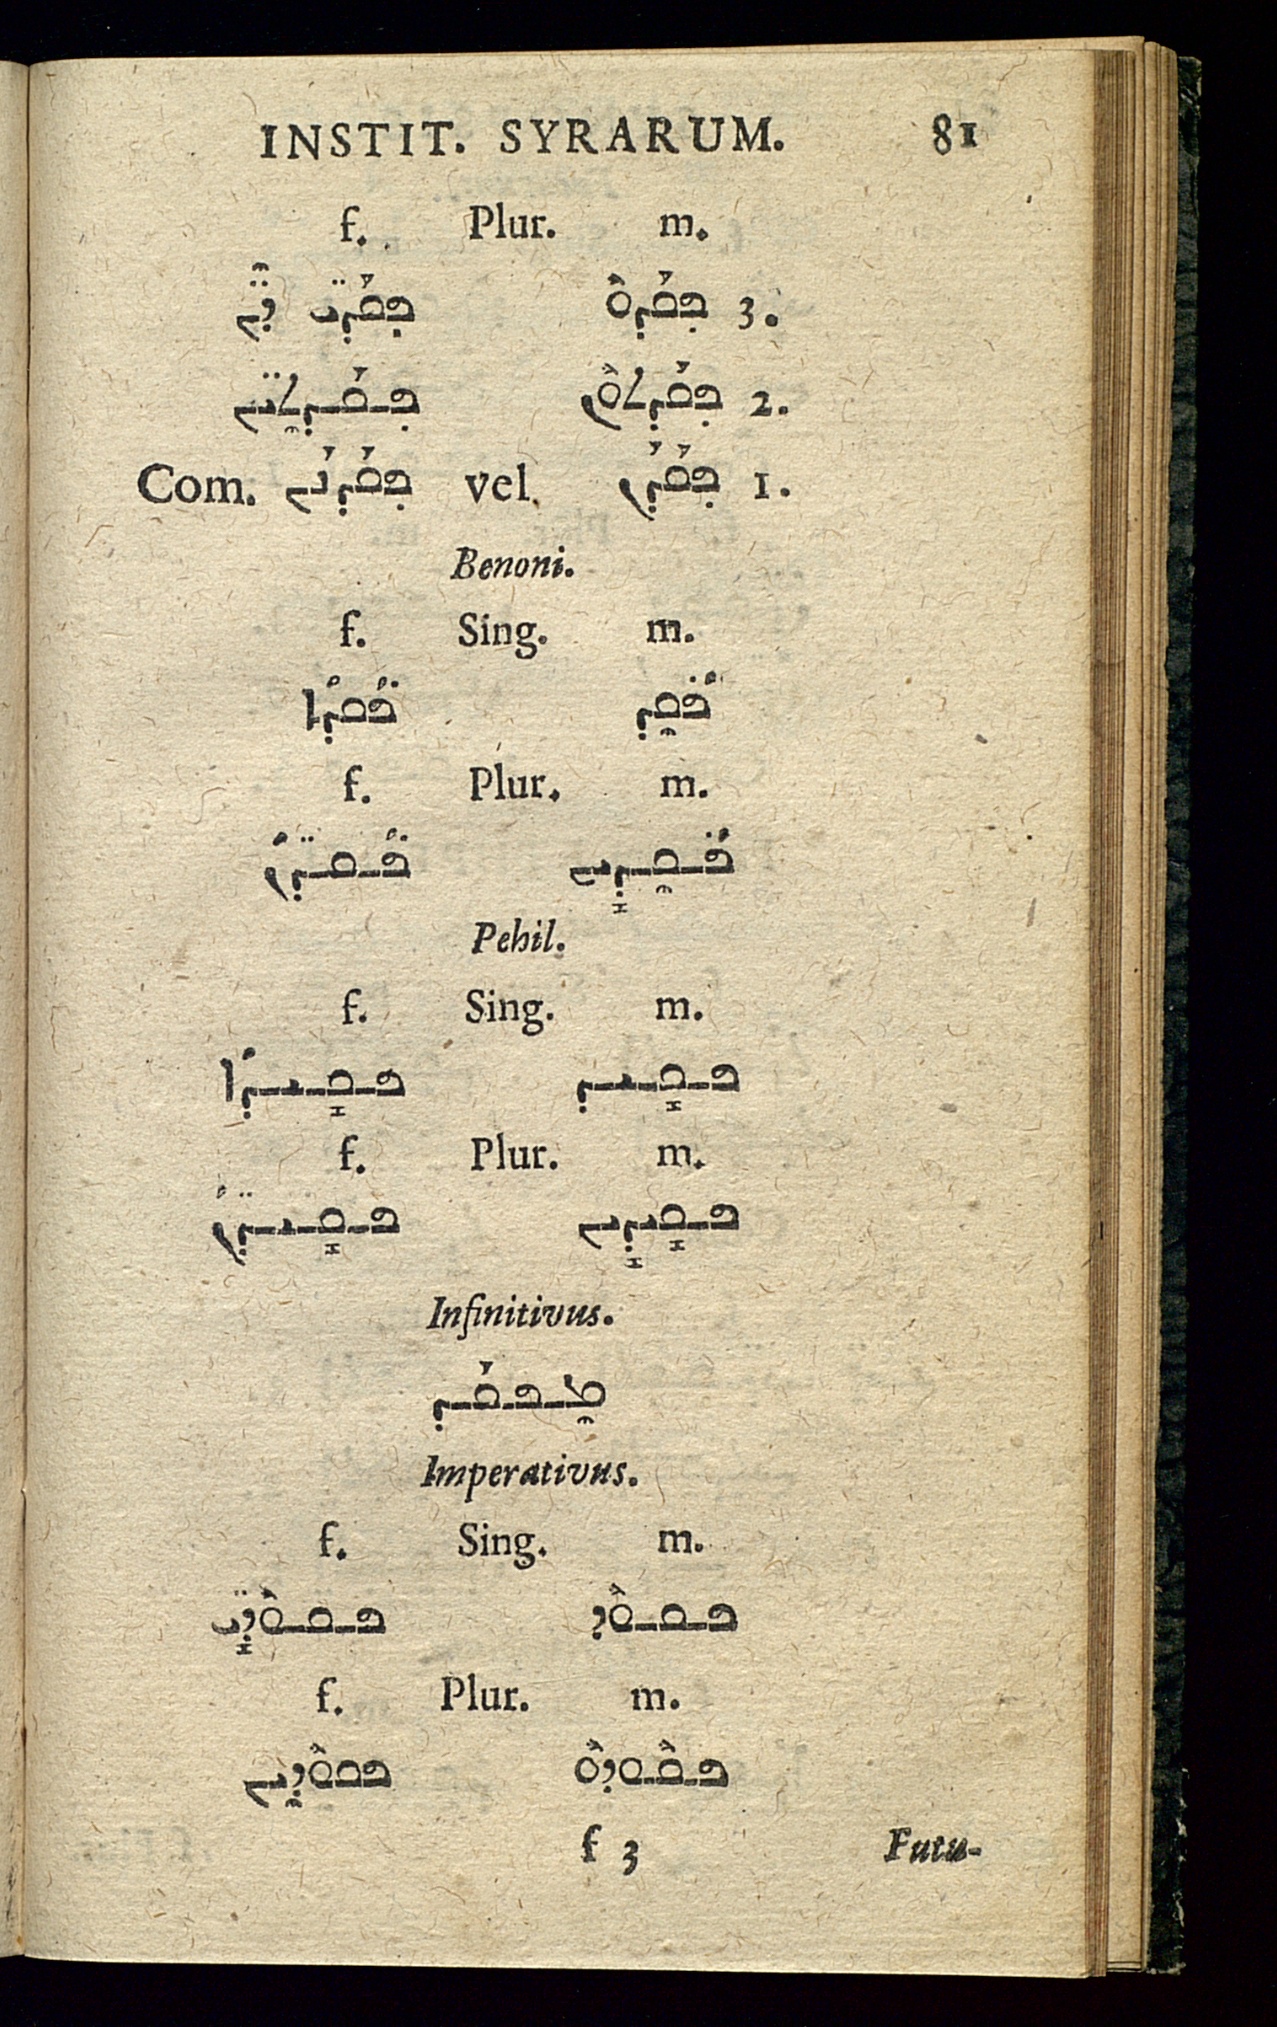 INSTIT. SYRARUM. 81
f. Plur. m.
3. ܦܩܰܕܘ ܦܩܰܕ̈ܝ ܕ̈ܝܢ
2. ܦܩܰܕܬܘܢ ܦܩܰܕܬܶܝ̈ܢ
1. ܦܩܰܕܰܢ vel ܦܩܰܕܢܰܢ Com.
Benoni.
f. Sing. m.
ܦܳܩܶܕ ܦܳܩܕܳܐ
f. Plur. m.
ܦܳܩܕܺܝܢ ܦܳܩ̈ܕܳܢ
Pehil.
f. Sing. m.
ܦܩܺܝܕ ܦܩܺܝܕܳܐ
f. Plur. m.
ܦܩܺܝܕܺܝܢ ܦܩܺܝܕ̈ܳܢ
Infinitivus.
ܡܶܦܩܰܕ
Imperativus.
f. Sing. m.
ܦܩܘܽܕ ܦܩܘܽܕ̈ܺܝ
f. Plur. m.
ܦܩܽܘܕܘܽ ܦܩܘܽܕܶܝܢ
f 3 Futu-